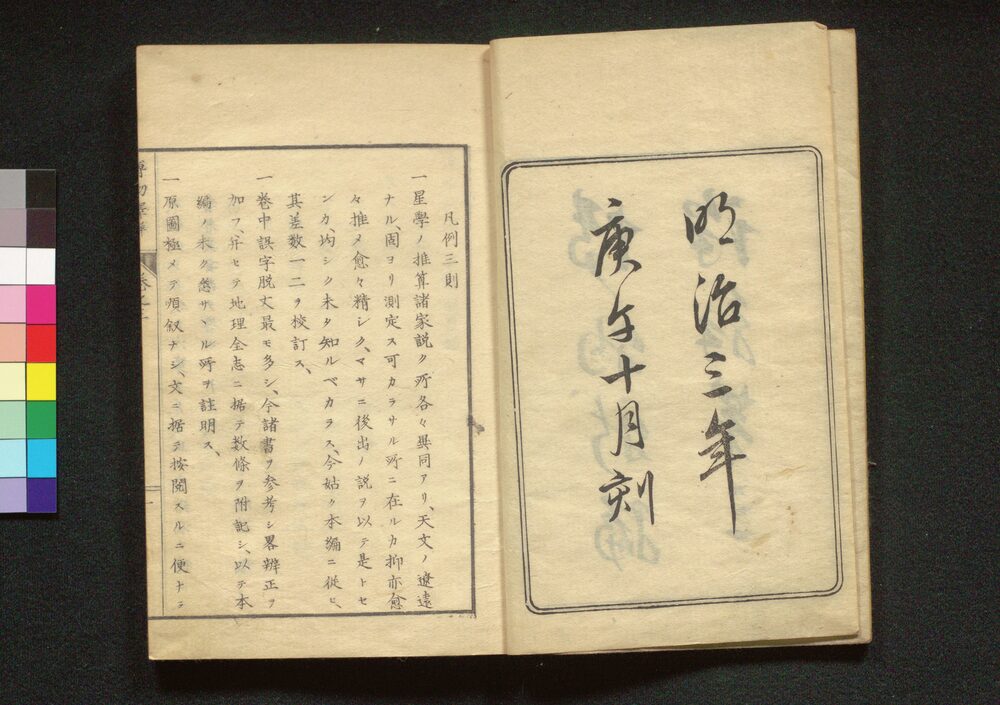 明治三年
庚午十月刻
凡例三則
一星學ノ推算諸家説ク所各々異同アリ、天文ノ遼遠
ナル、固ヨリ測定ス可カラサル所ニ在ルカ抑亦愈
々推メ愈々精シク、マサニ後出ノ説ヲ以テ是トセ
ンカ、均シク未タ知ルベカラス、今姑ク本編ニ從ヒ、
其差數一二ヲ校訂ス、
一卷中誤字脱文最モ多シ、今諸書ヲ参考シ畧辨正ヲ
加フ、并セテ地理全志ニ据テ数條ヲ附記シ、以テ本
編ノ未タ悉サヾル所ヲ註明ス、
一原圖極メテ順叙ナシ、文ニ据テ按閲スルニ便ナラ